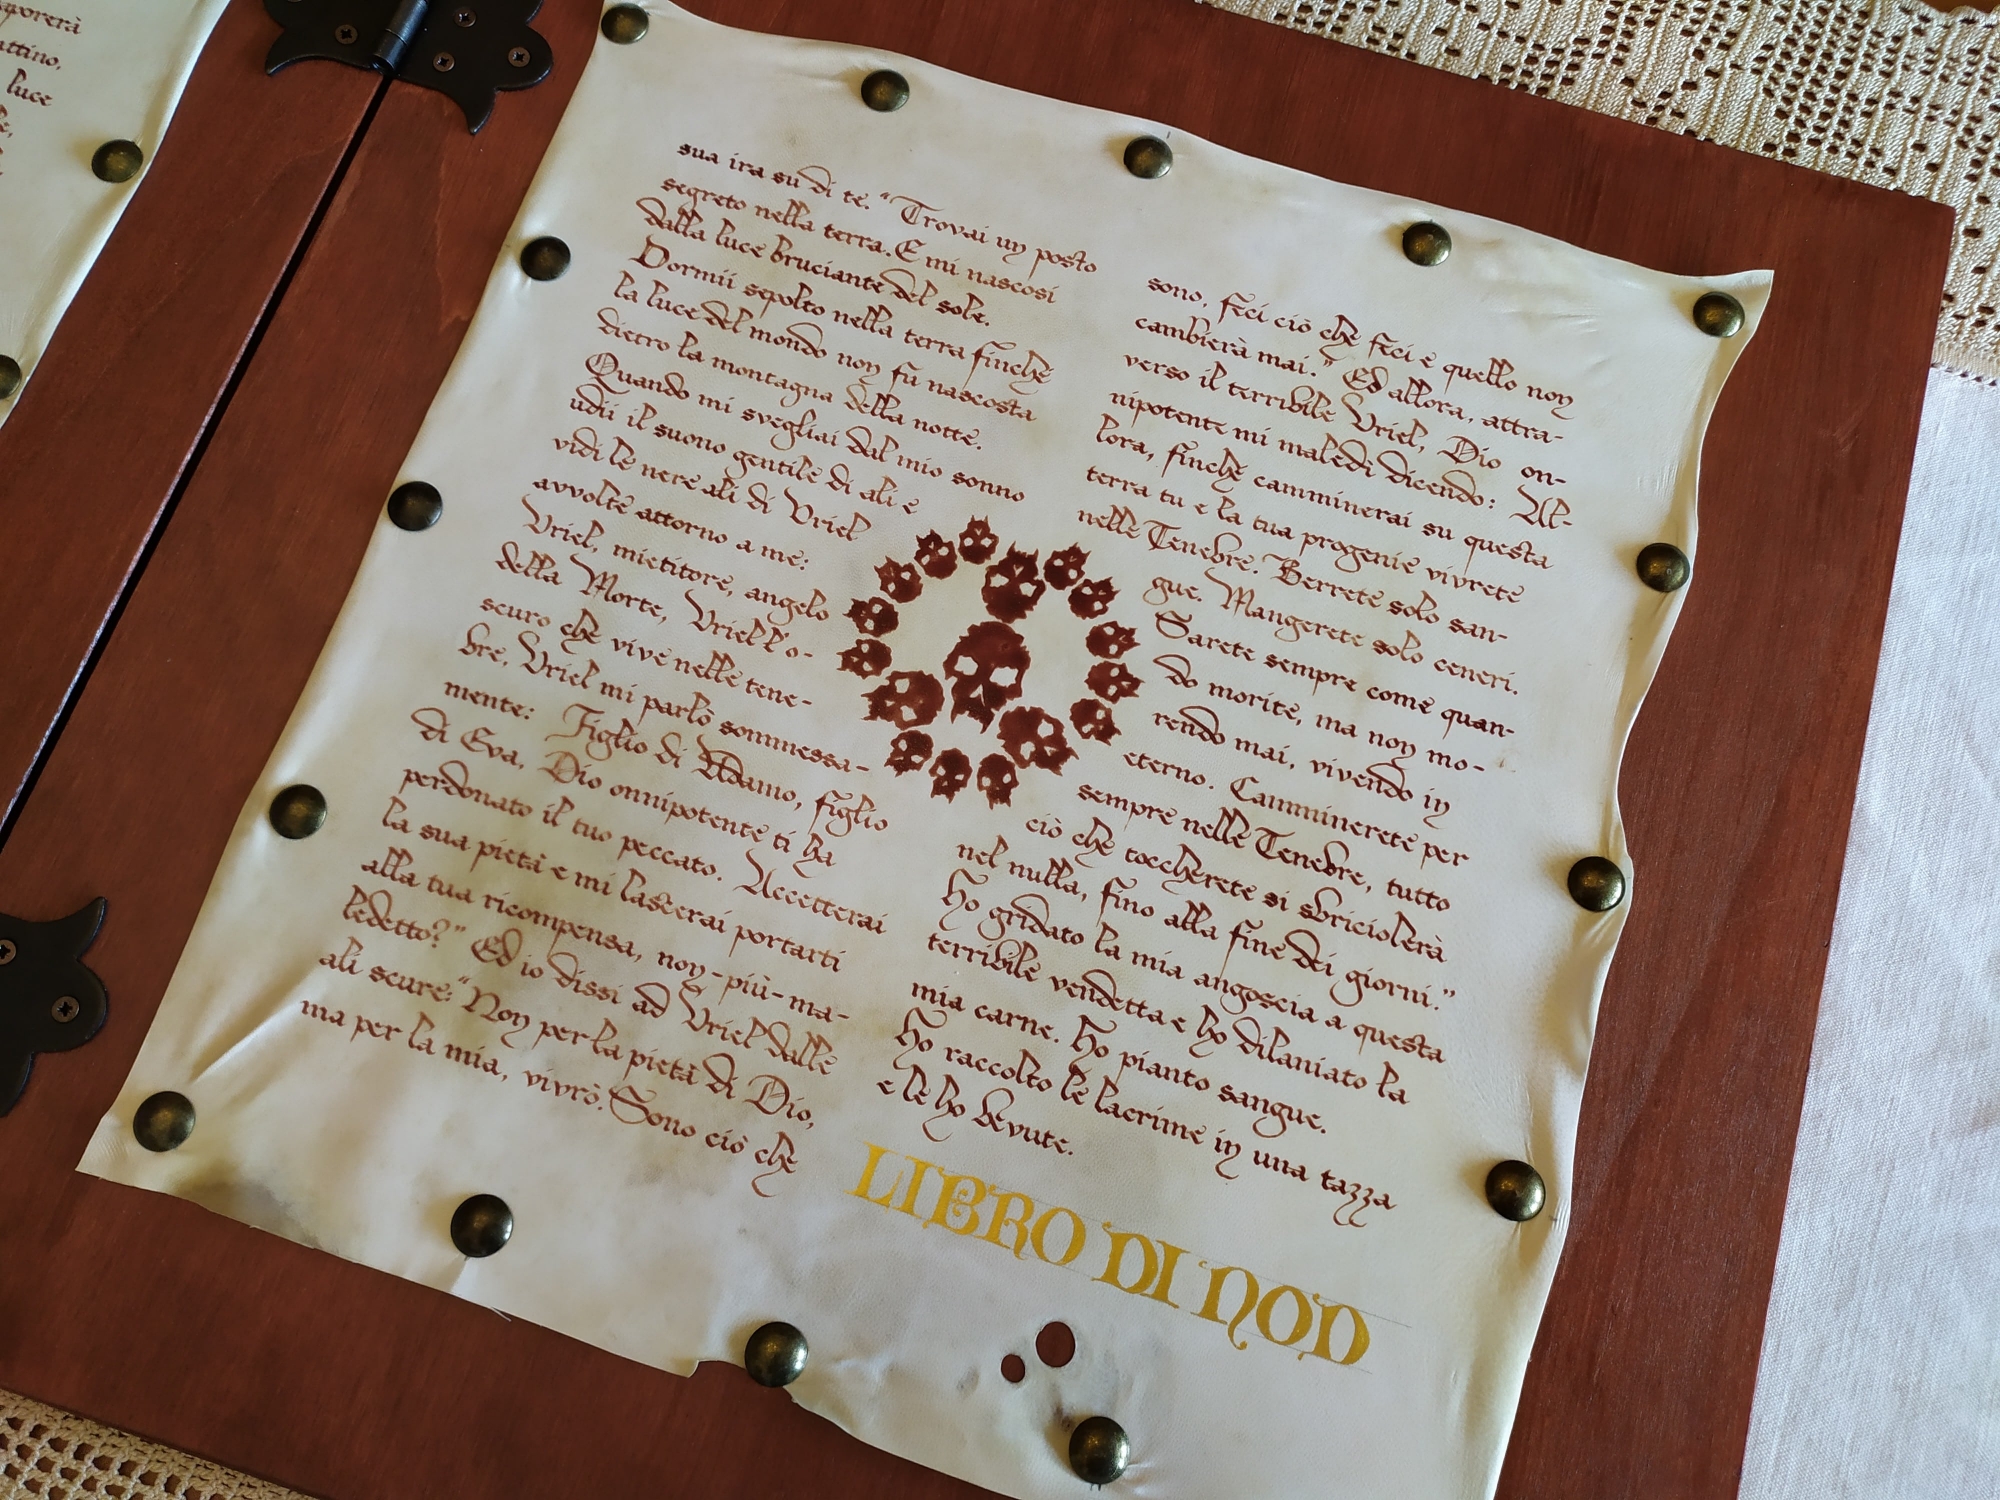 aporerà
attino,
luce
sua ira su di te." Trovai un posto
segreto nella terra. E mi nascosi
dalla luce bruciante del sole.
Dormii sepolto nella terra finchè
la luce del mondo non fu nascosta
dietro la montagna della notte.
Quando mi svegliai dal mio sonno
udii il suono gentile di ali e
vidi le nere ali di Uriel
avvolte attorno a me:
Uriel, mietitore, angelo
della Morte, Uriel l'o-
scuro che vive nelle tene-
bre, Uriel mi parlò sommessa-
mente: Figlio di Adamo, figlio
di Eva, Dio onnipotente ti ha
perdonato il tuo peccato. Accetterai
la sua pietà e mi lascerai portarti
alla tua ricompensa, non-più-ma-
ledetto?" Ed io dissi ad Uriel dalle
ali scure: "Non per la pietà di Dio,
ma per la mia, vivrò. Sono ciò che
sono, feci ciò che feci e quello non
cambierà mai." Ed allora, attra-
verso il terribile Uriel, Dio on-
nipotente mi maledì dicendo: Al-
lora, finchè camminerai su questa
terra tu e la tua progenie vivrete
nelle Tenebre. Berrete solo san-
gue. Mangerete solo ceneri.
Sarete sempre come quan-
do morite, ma non mo-
rendo mai, vivendo in
eterno. Camminerete per
sempre nelle Tenebre, tutto
ciò che toccherete si sbriciolerà
nel nulla, fino alla fine dei giorni."
Ho gridato la mia angoscia a questa
terribile vendetta e ho dilaniato la
mia carne. Ho pianto sangue.
Ho raccolto le lacrime in una tazza
e le ho bevute.
LIBRO DI NOD